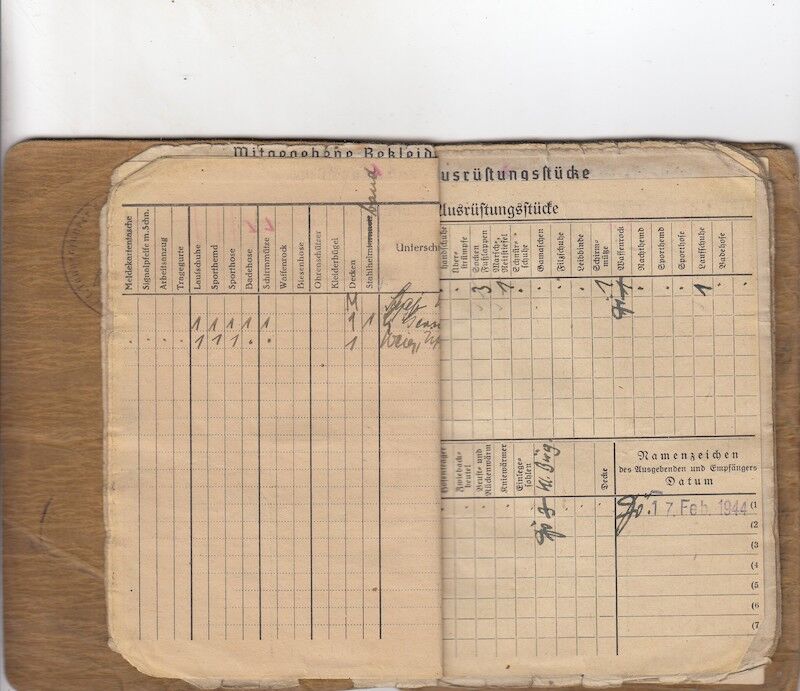 Mitgegebene Bekleid
usrüstungsstücke
Ausrüstungsstücke
Meldekartentasche
Signalpfeife m. Schn.
Arbeitsanzug
Tragegurte
Laufschuhe
Sporthemd
Sporthose
Badehose
Schirmmütze
Waffenrock
Biesenhose
Ohrenschützer
Kleiderbügel
Decken
Stahlhelm
band
Untersch
handschuhe
Über-
strümpfe
Socken
Fußlappen
Marsch-,
Reitstiefel
Schnür-
schuhe
Gamaschen
Filzschuhe
Leibbinde
Schirm-
mütze
Waffenrock
Nachthemd
Sporthemd
Sporthose
Laufschuhe
Badehose
3 1 1 1
1 1 1 1 1 1 1
1 1 1 1
Zwieback-
beutel
Brust- und
Rückenwärm
Kniewärmer
Einlege-
sohlen
Kl. Büg.
Decke
Namenzeichen
des Ausgebenden und Empfängers
Datum
17. Feb. 1944 (1
(2
(3
(4
(5
(6
(7